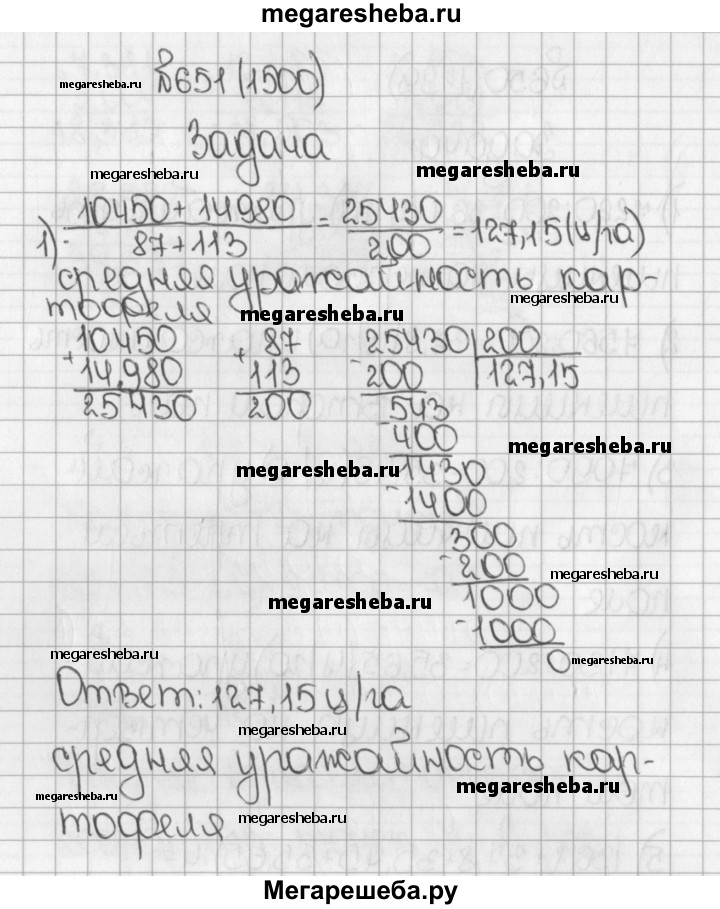 megaresheba.ru
megaresheba.ru №651 (1500)
Задача
megaresheba.ru megaresheba.ru
1) 10450+14980 / 87+113 = 25430 / 200 = 127,15 (ц/га)
средняя урожайность кар-
megaresheba.ru
тофеля megaresheba.ru
10450 87 25430 200
+ 14980 + 113 - 200 127,15
25430 200 543
- 400 megaresheba.ru
megaresheba.ru 1430
- 1400
300
- 200 megaresheba.ru
megaresheba.ru 1000
- 1000
megaresheba.ru 0 megaresheba.ru
Ответ: 127,15 ц/га
megaresheba.ru
средняя урожайность кар-
megaresheba.ru megaresheba.ru
тофеля megaresheba.ru
Мегарешеба.ру